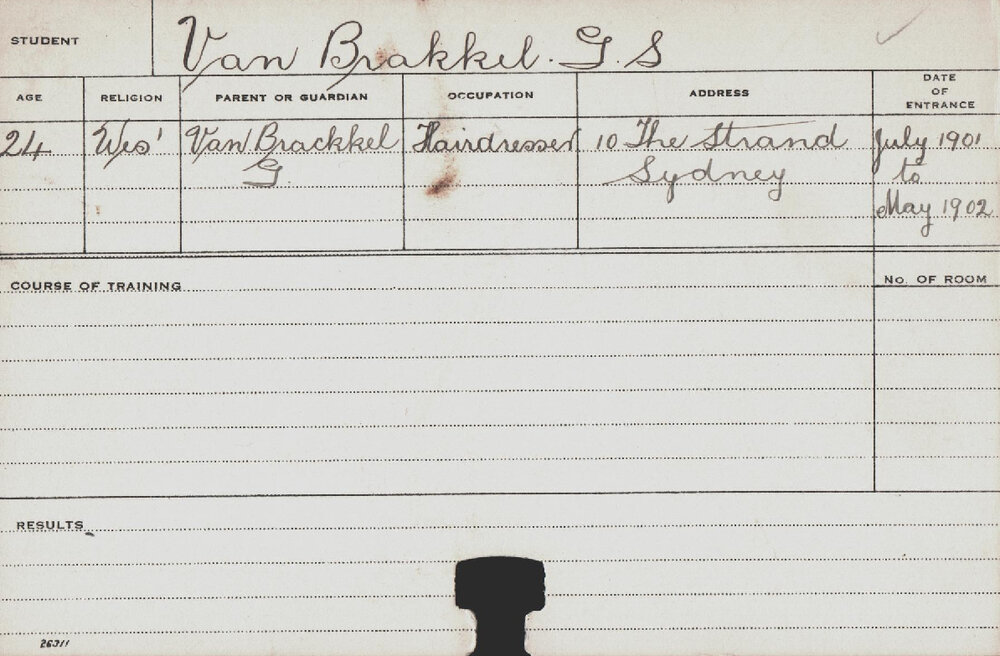 STUDENT Van Brakkel. G. S
AGE RELIGION PARENT OR GUARDIAN OCCUPATION ADDRESS DATE OF ENTRANCE
24 Wes' Van Brackkel Hairdresser 10 The Strand July 1901
G. Sydney to
May 1902
COURSE OF TRAINING No. OF ROOM
RESULTS
26311